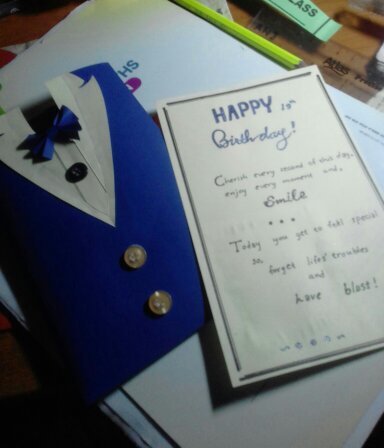 HAPPY 19th
Birthday!
Cherish every second of this day.
enjoy every moment and,
Smile
Today you get to feel special
so,
forget lifes' troubles
and
have blast!
CLASS
HS